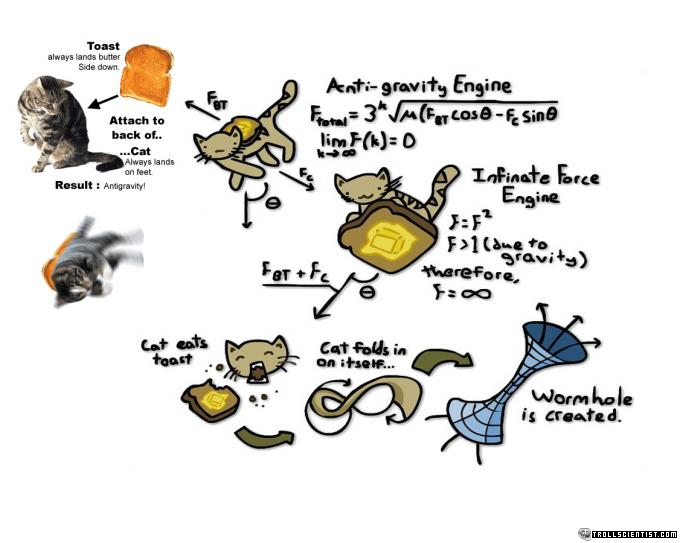 Toast
always lands butter
Side down.
Attach to
back of..
...Cat
Always lands
on feet.
Result : Antigravity!
F_BT
F_c
θ
Anti-gravity Engine
F_total = 3^k √μ(F_BT cosθ - F_c sinθ
lim F(k) = 0
k→∞
Infinate Force
Engine
F = F²
F > 1 (due to
gravity)
therefore,
F = ∞
F_BT + F_c
θ
Cat eats
toast
Cat folds in
on itself...
Wormhole
is created.
TROLLSCIENTIST.COM